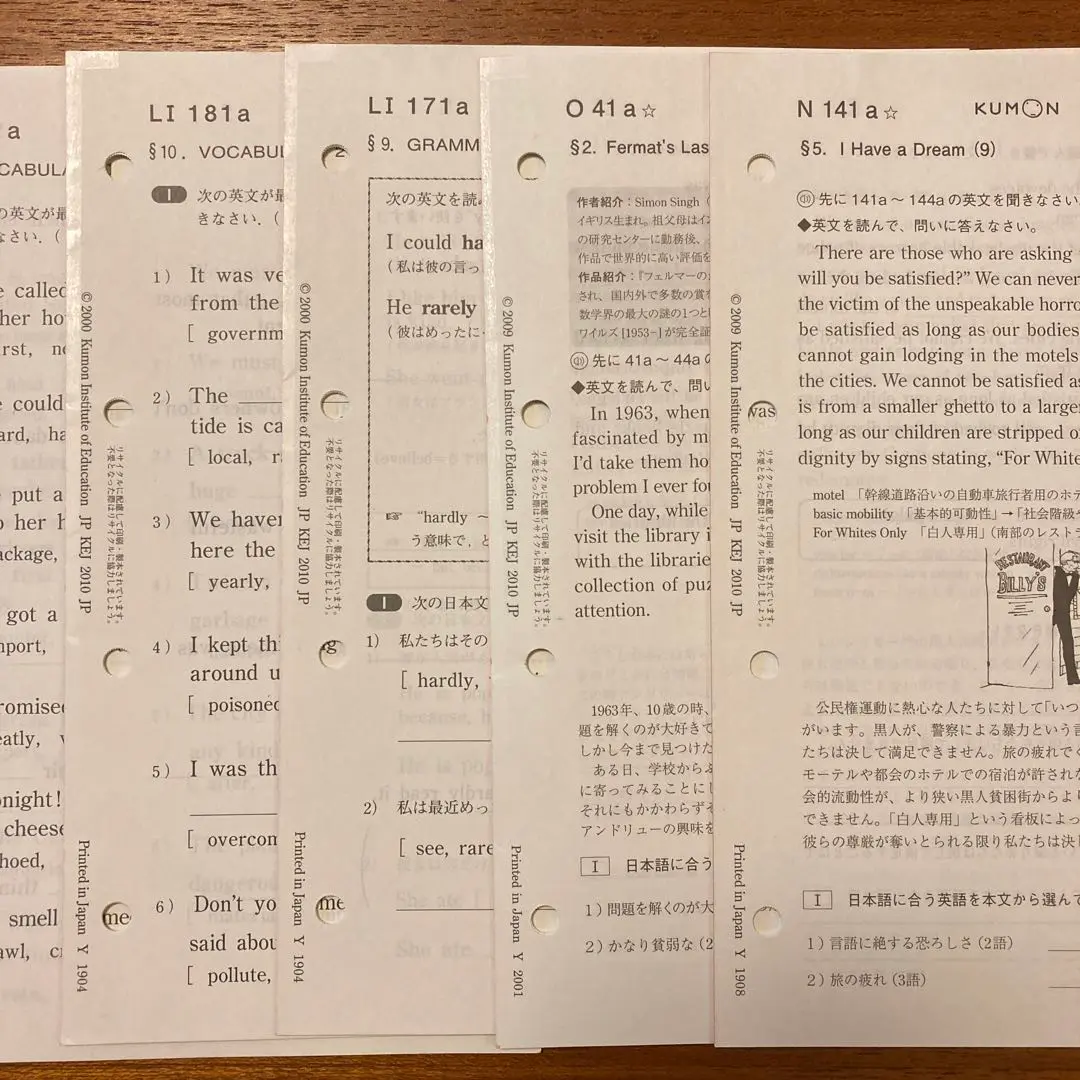 a
CABULA
の英文が最
さい.(
e called
her ho
rst, ne
e could
ard, ha
e put a
o her h
ackage,
got a
nport,
romised
eatly,
onight!
cheese
hoed,
smell
awl,
LI 181a
§10. VOCABUL
I 次の英文が最
きなさい.(
1) It was ve
from the
[ governm
2) The
tide is ca
[ local,
3) We haven
here the
[ yearly,
4) I kept thi
around u
[ poisoned
5) I was th
[ overcom
6) Don't yo
said abou
[ pollute,
© 2000 Kumon Institute of Education JP KEJ 2010 JP
リサイクルに配慮して印刷・製本されています。
不要となった際はリサイクルに協力しましょう。
Printed in Japan Y 1904
me
LI 171a
§9. GRAMM
次の英文を読
I could ha
(私は彼の言っ
He rarely
(彼はめったに
☞ "hardly ～
う意味で,と
I 次の日本文
1) 私たちはその
[ hardly,
2) 私は最近めっ
[ see, rare
© 2000 Kumon Institute of Education JP KEJ 2010 JP
リサイクルに配慮して印刷・製本されています。
不要となった際はリサイクルに協力しましょう。
Printed in Japan Y 1904
me
O 41a☆
§2. Fermat's Las
作者紹介：Simon Singh（
イギリス生まれ。祖父母はイン
の研究センターに勤務後、
作品で世界的に高い評価を
作品紹介：『フェルマーの
され、国内外で多数の賞を
数学界の最大の謎の1つと
ワイルズ[1953-]が完全証
先に 41a～44a の
◆英文を読んで、問い
In 1963, when
fascinated by m
I'd take them ho
problem I ever fou
One day, while
visit the library i
with the librarie
collection of puz
attention.
1963年、10歳の時、
題を解くのが大好きで
しかし今まで見つけた
ある日、学校から
に寄ってみることにし
それにもかかわらずそ
アンドリューの興味を
I 日本語に合う
1) 問題を解くのが大
2) かなり貧弱な (2
© 2009 Kumon Institute of Education JP KEJ 2010 JP
リサイクルに配慮して印刷・製本されています。
不要となった際はリサイクルに協力しましょう。
Printed in Japan Y 2001
N 141a☆ KUMON
§5. I Have a Dream (9)
先に 141a～144a の英文を聞きなさい。
◆英文を読んで、問いに答えなさい。
There are those who are asking
will you be satisfied?" We can never
the victim of the unspeakable horro
be satisfied as long as our bodies
cannot gain lodging in the motels
the cities. We cannot be satisfied as
is from a smaller ghetto to a larger
long as our children are stripped o
dignity by signs stating, "For White
motel 「幹線道路沿いの自動車旅行者用のホテ
basic mobility 「基本的可動性」→「社会階級や
For Whites Only 「白人専用」(南部のレストラ
RESTAURANT
BILLY'S
公民権運動に熱心な人たちに対して「いつ
がいます。黒人が、警察による暴力という言
たちは決して満足できません。旅の疲れで
モーテルや都会のホテルでの宿泊が許されな
会的流動性が、より狭い黒人貧困街からより
できません。「白人専用」という看板によっ
彼らの尊厳が奪いとられる限り私たちは決し
I 日本語に合う英語を本文から選んで
1) 言語に絶する恐ろしさ (2語)
2) 旅の疲れ (3語)
© 2009 Kumon Institute of Education JP KEJ 2010 JP
リサイクルに配慮して印刷・製本されています。
不要となった際はリサイクルに協力しましょう。
Printed in Japan Y 1908
was